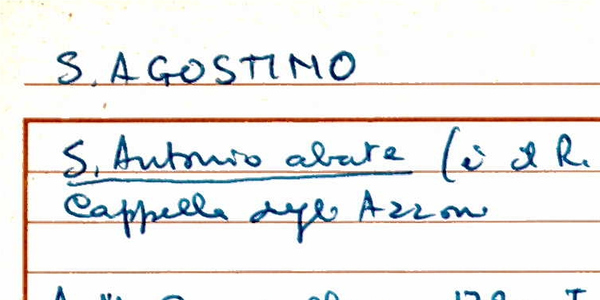 S. AGOSTINO
S. Antonio abate (è il R.
Cappella degli Azzoni